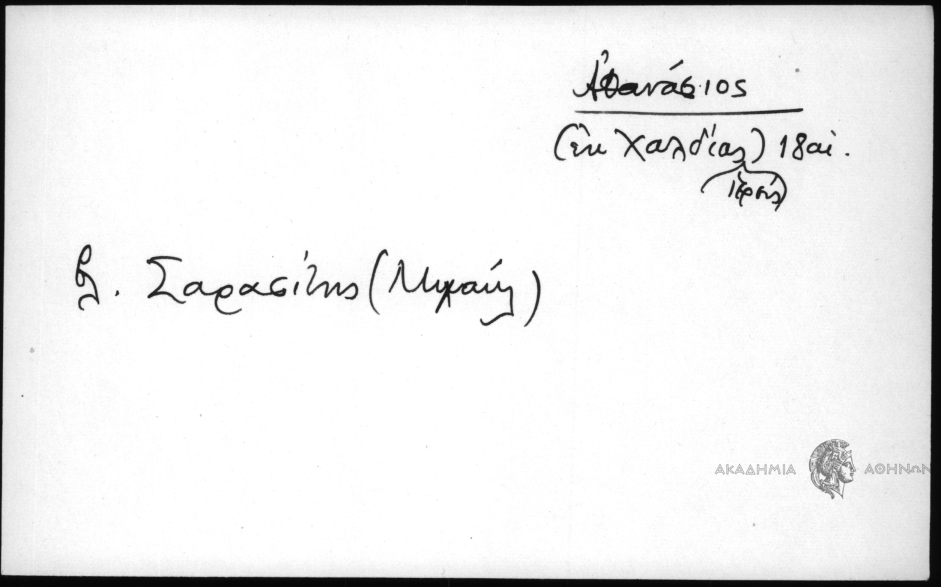 Ἀθανάσιος
(ἐκ Χαλδίας) 18 αἰ.
ἱερεύς
βλ. Σαρασίτης (Μιχαήλ)
ΑΚΑΔΗΜΙΑ ΑΘΗΝΩΝ